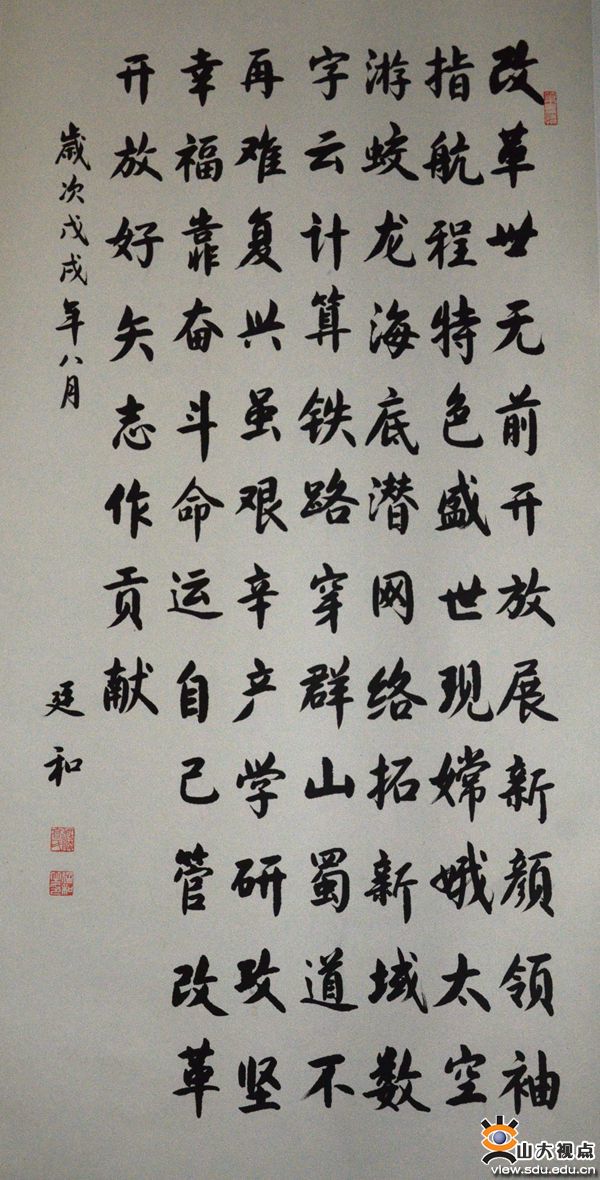 改革世无前开放展新颜领袖
指航程特色盛世现嫦娥太空
游蛟龙海底潜网络拓新域数
字云计算铁路穿群山蜀道不
再难复兴虽艰辛产学研攻坚
幸福靠奋斗命运自己管改革
开放好矢志作贡献
歲次戊戌年八月
廷和
山大视点
view.sdu.edu.cn